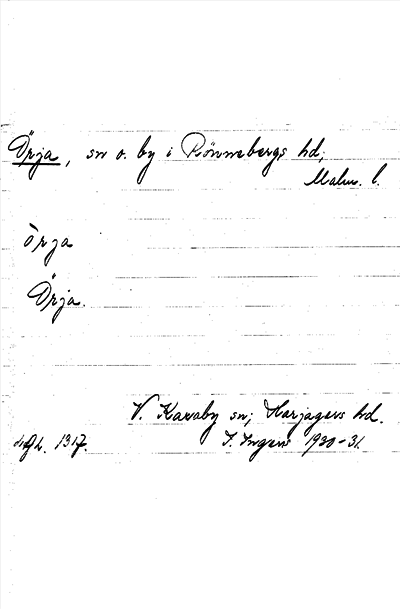 Örja, sn o. by i Rönnebergs hd;
Malm. l.
örja
Örja.
V. Karaby sn; Harjagers hd.
1317. I. Ingers 1930-31.